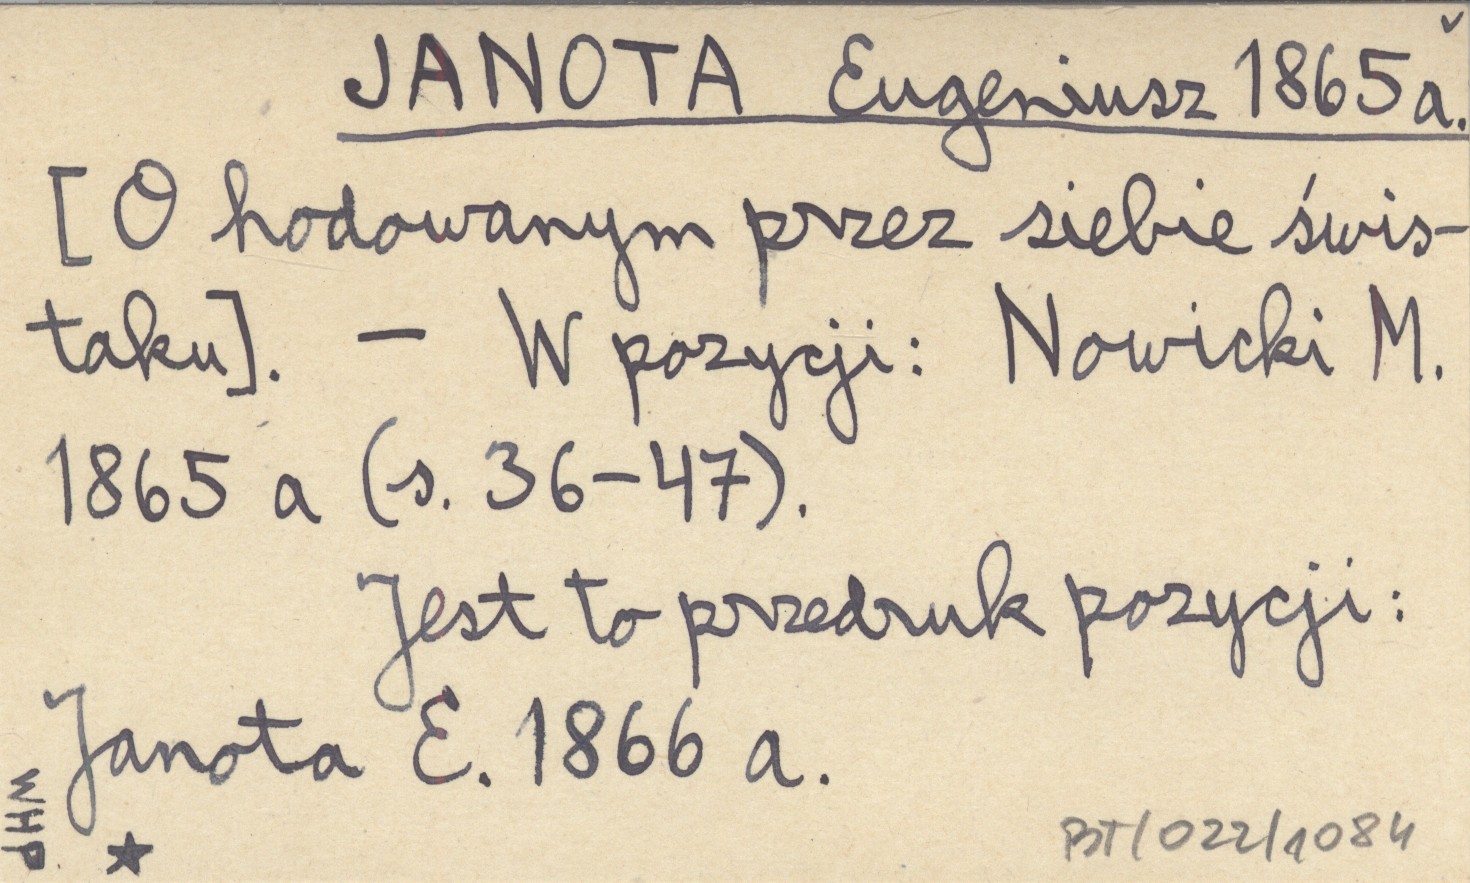 JANOTA Eugeniusz 1865 a.
[O hodowanym przez siebie świs-
taku]. – W pozycji: Nowicki M.
1865 a (s. 36–47).
Jest to przedruk pozycji:
Janota E. 1866 a.
WHP
BT/022/1084